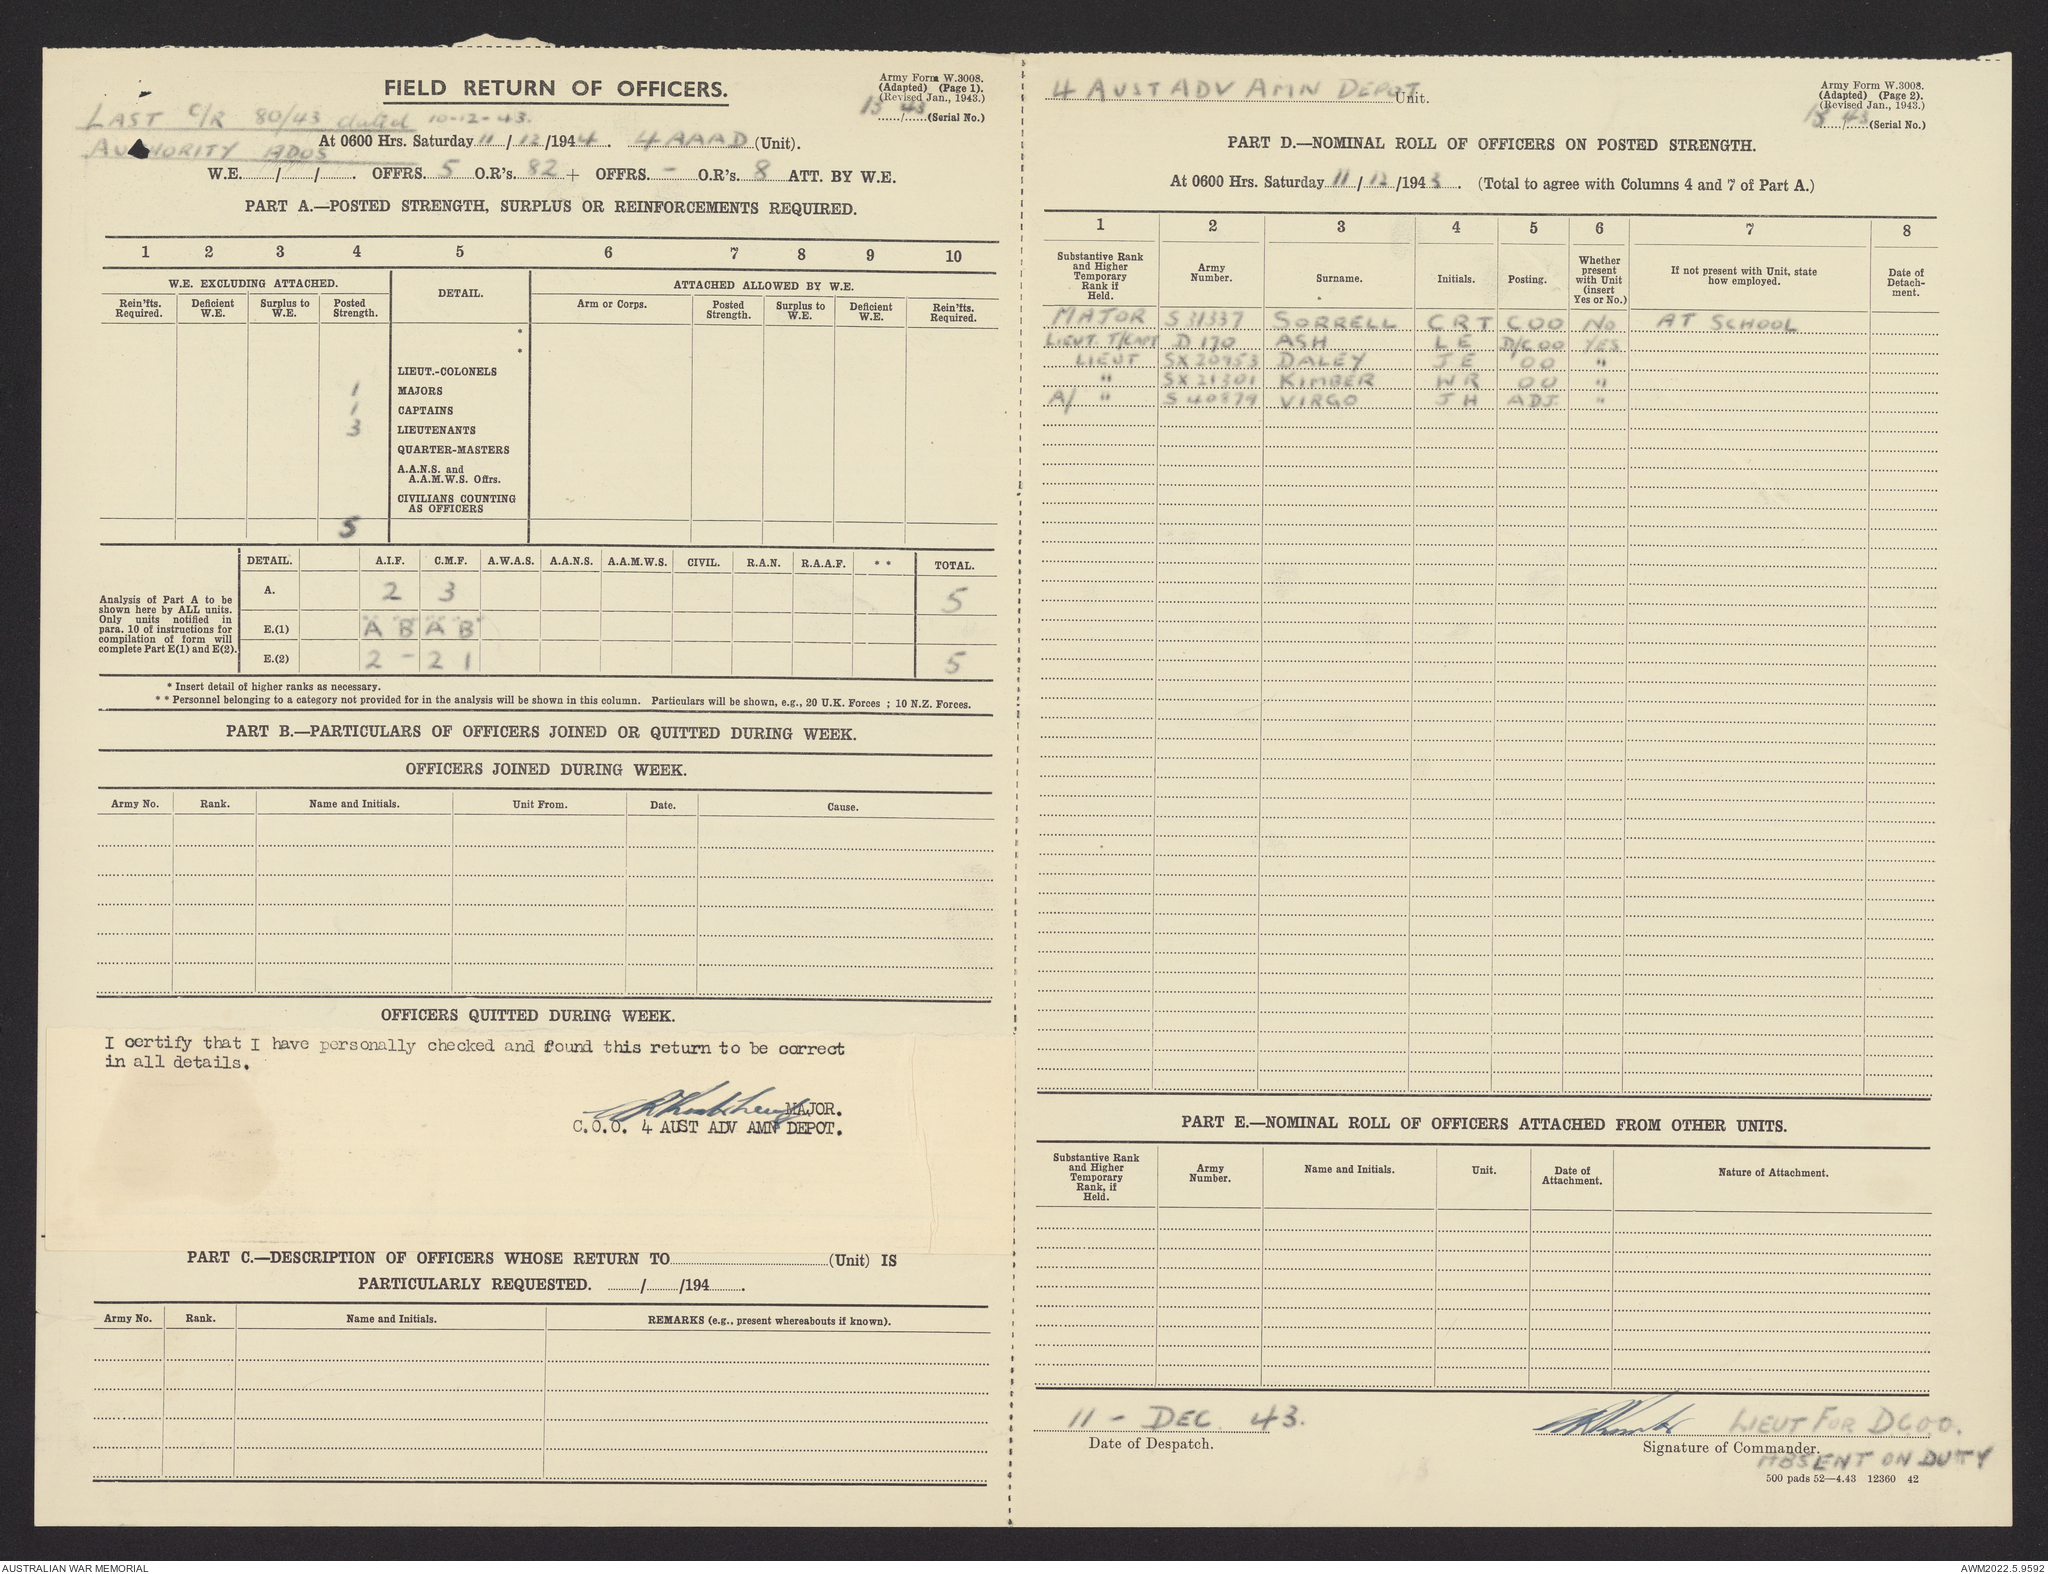 FIELD RETURN OF OFFICERS.
Army Form W.3008.
(Adapted) (Page 1).
(Revised Jan., 1943.)
13/43 (Serial No.)
LAST C/R 80/43 dated 10-12-43.
AUTHORITY ADOS
At 0600 Hrs. Saturday 11/12/1944. 4 AAAD (Unit).
W.E....../....../...... OFFRS. 5 O.R's. 82 + OFFRS. - O.R's. 8 ATT. BY W.E.
PART A.—POSTED STRENGTH, SURPLUS OR REINFORCEMENTS REQUIRED.
1 2 3 4 5 6 7 8 9 10
W.E. EXCLUDING ATTACHED. DETAIL. ATTACHED ALLOWED BY W.E.
Rein'fts. Required. Deficient W.E. Surplus to W.E. Posted Strength. Arm or Corps. Posted Strength. Surplus to W.E. Deficient W.E. Rein'fts. Required.
*
*
LIEUT.-COLONELS
1 MAJORS
1 CAPTAINS
3 LIEUTENANTS
QUARTER-MASTERS
A.A.N.S. and
A.A.M.W.S. Offrs.
CIVILIANS COUNTING
AS OFFICERS
5
Analysis of Part A to be
shown here by ALL units.
Only units notified in
para. 10 of instructions for
compilation of form will
complete Part E(1) and E(2).
DETAIL. A.I.F. C.M.F. A.W.A.S. A.A.N.S. A.A.M.W.S. CIVIL. R.A.N. R.A.A.F. * * TOTAL.
A. 2 3 5
E.(1) A B A B
E.(2) 2 - 2 1 5
* Insert detail of higher ranks as necessary.
* * Personnel belonging to a category not provided for in the analysis will be shown in this column. Particulars will be shown, e.g., 20 U.K. Forces ; 10 N.Z. Forces.
PART B.—PARTICULARS OF OFFICERS JOINED OR QUITTED DURING WEEK.
OFFICERS JOINED DURING WEEK.
Army No. Rank. Name and Initials. Unit From. Date. Cause.
OFFICERS QUITTED DURING WEEK.
I certify that I have personally checked and found this return to be correct
in all details.
MAJOR.
C.O.O. 4 AUST ADV AMN DEPOT.
PART C.—DESCRIPTION OF OFFICERS WHOSE RETURN TO......(Unit) IS
PARTICULARLY REQUESTED. ....../....../194......
Army No. Rank. Name and Initials. REMARKS (e.g., present whereabouts if known).
4 AUST ADV AMN DEPOT Unit.
Army Form W.3008.
(Adapted) (Page 2).
(Revised Jan., 1943.)
13/43 (Serial No.)
PART D.—NOMINAL ROLL OF OFFICERS ON POSTED STRENGTH.
At 0600 Hrs. Saturday 11/12/1943. (Total to agree with Columns 4 and 7 of Part A.)
1 2 3 4 5 6 7 8
Substantive Rank and Higher Temporary Rank if Held. Army Number. Surname. Initials. Posting. Whether present with Unit (insert Yes or No.) If not present with Unit, state how employed. Date of Detach-ment.
MAJOR S 31337 SORRELL C R T COO No AT SCHOOL
LIEUT. T/CAPT D 170 ASH L E D/COO YES
LIEUT SX 20953 DALEY J E OO "
" SX 21301 KIMBER W R OO "
A/ " S 40879 VIRGO J H ADJ. "
PART E.—NOMINAL ROLL OF OFFICERS ATTACHED FROM OTHER UNITS.
Substantive Rank and Higher Temporary Rank, if Held. Army Number. Name and Initials. Unit. Date of Attachment. Nature of Attachment.
11 - DEC 43.
Date of Despatch.
LIEUT FOR DCOO.
Signature of Commander.
ABSENT ON DUTY
500 pads 52—4.43 12360 42
AUSTRALIAN WAR MEMORIAL
AWM2022.5.9592